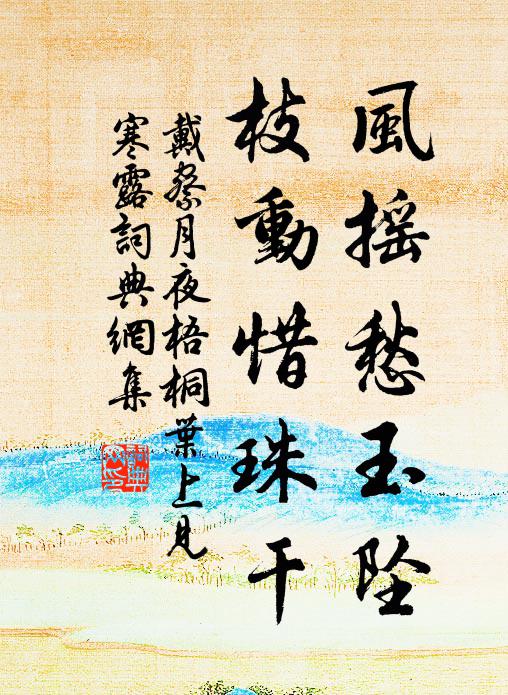 風摇愁玉坠
枝動惜珠干
戴察月夜梧桐葉上見
寒露詞典網集